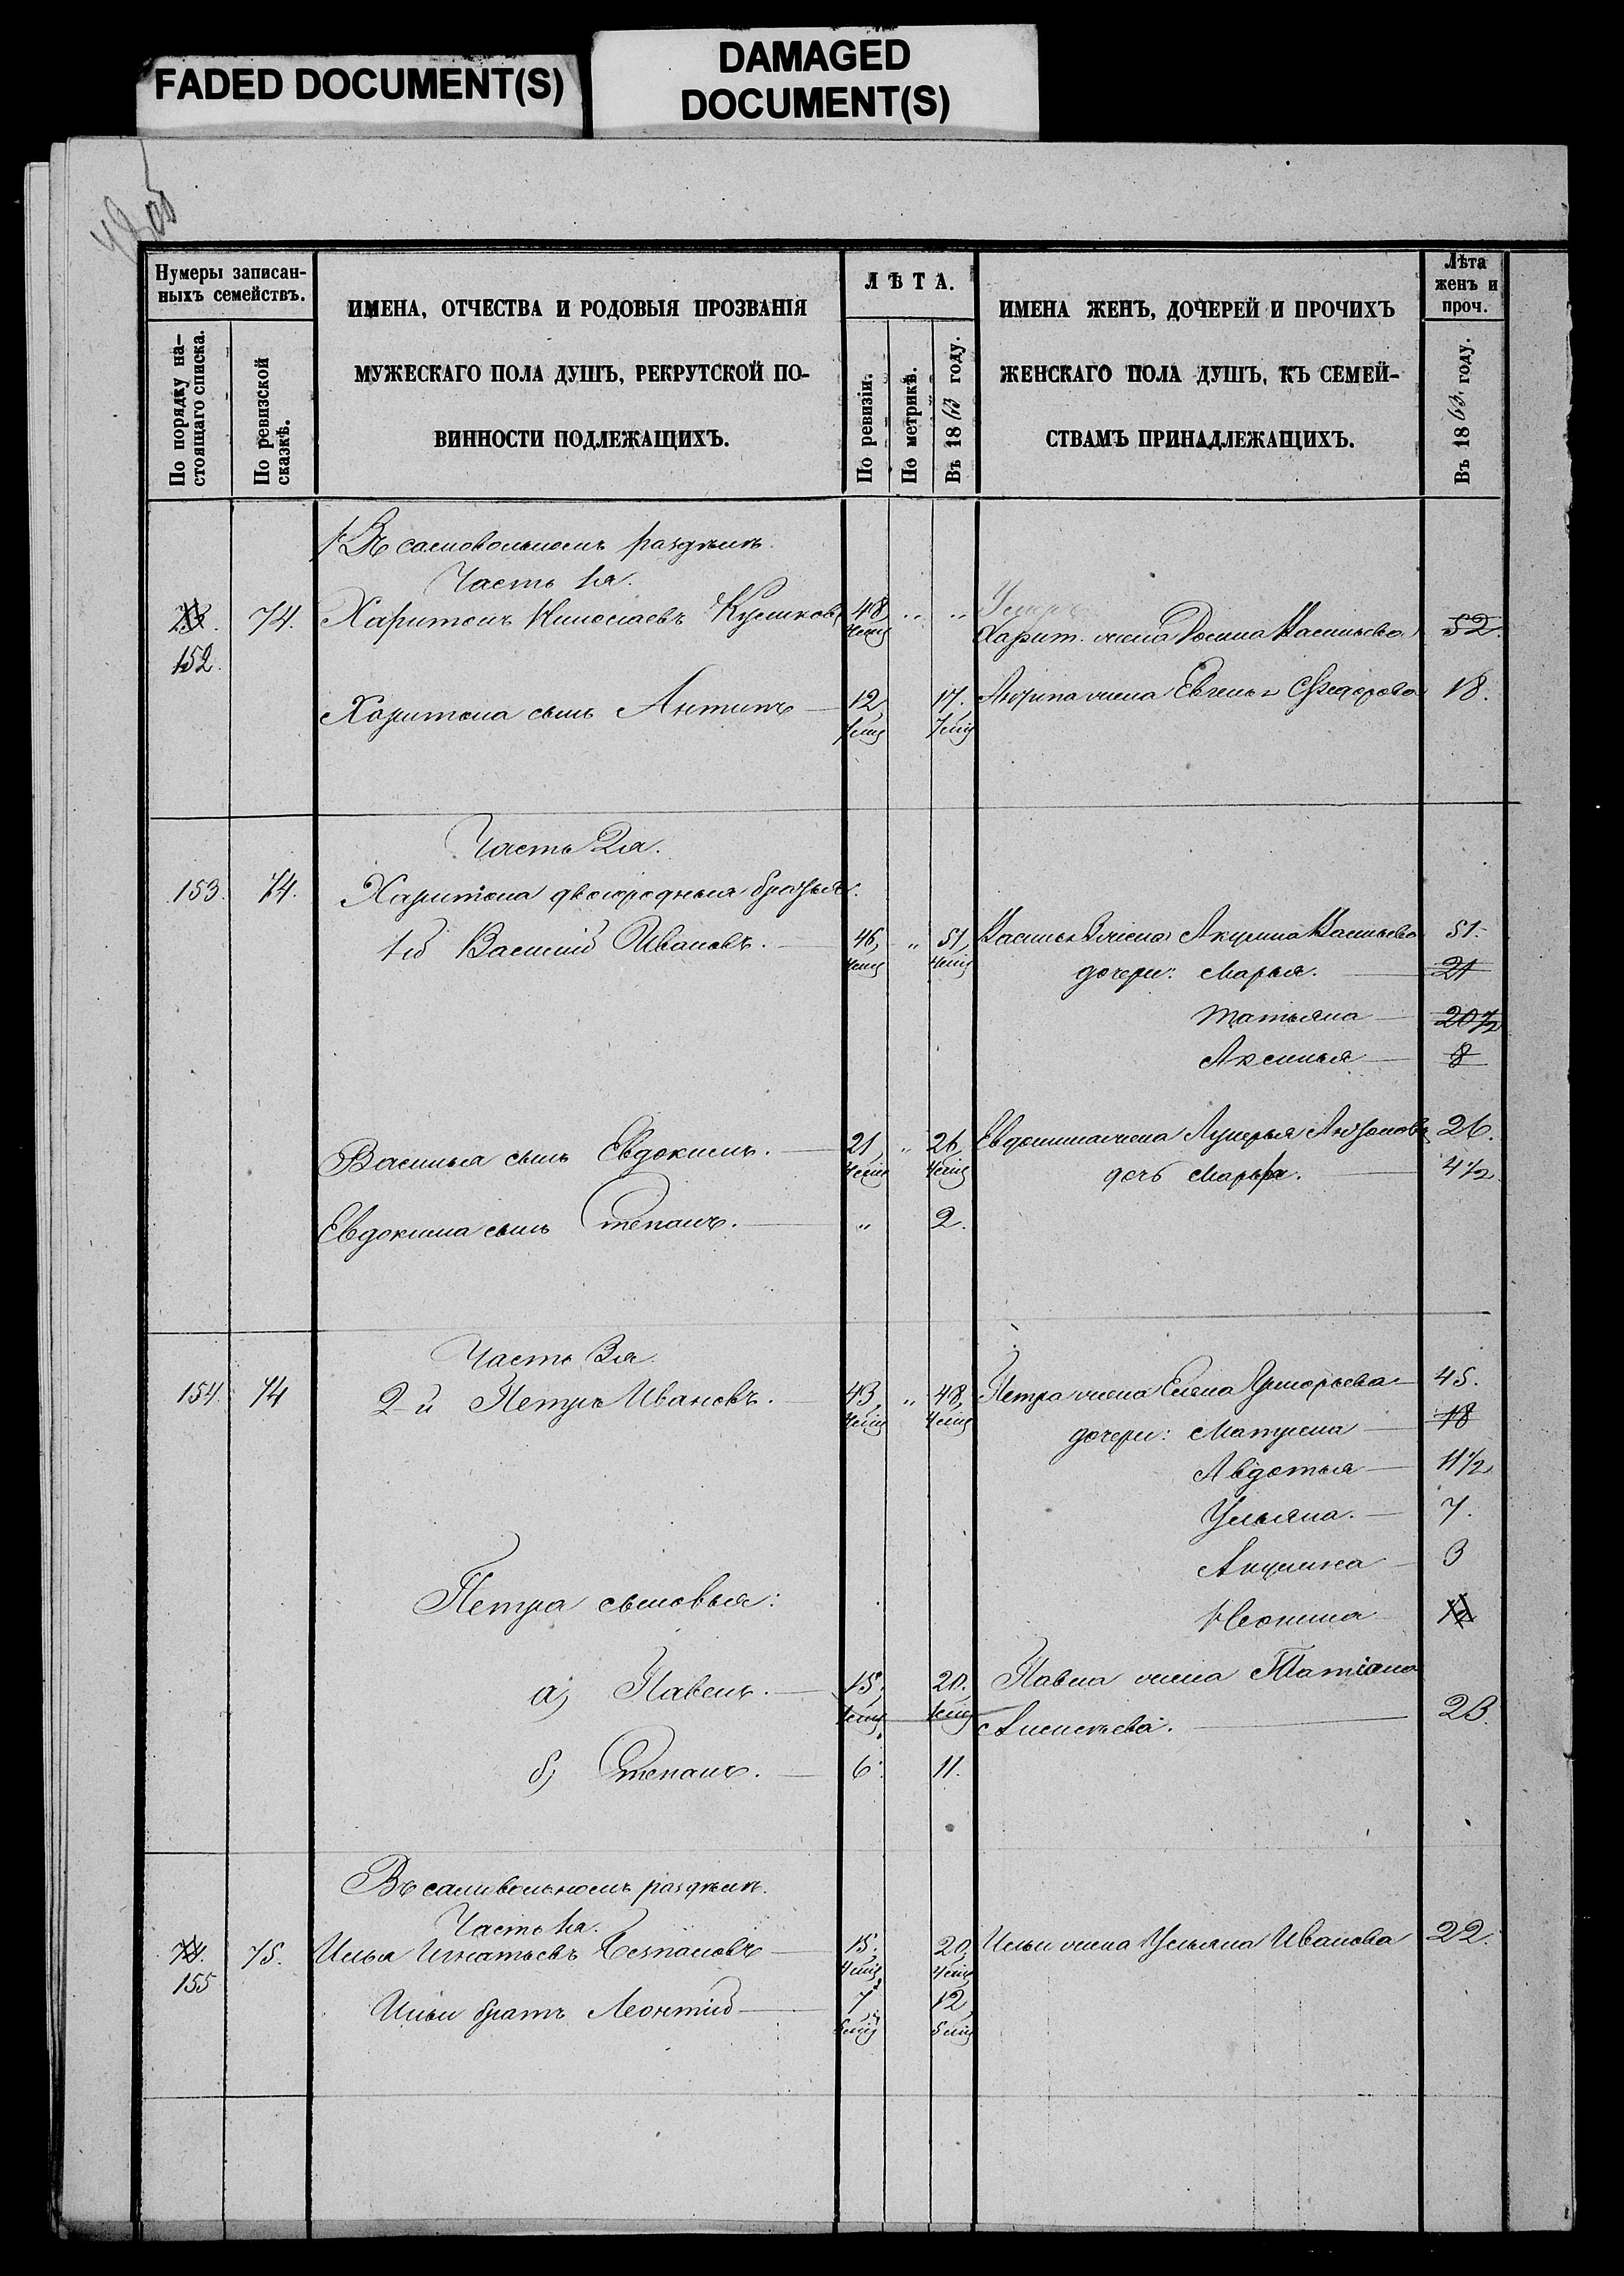 FADED DOCUMENT(S)
DAMAGED
DOCUMENT(S)
Нумеры записан-
ныхъ семействъ.
По порядку на-
стоящаго списка.
По ревизской
сказкѣ.
ИМЕНА, ОТЧЕСТВА И РОДОВЫЯ ПРОЗВАНІЯ
МУЖЕСКАГО ПОЛА ДУШЪ, РЕКРУТСКОЙ ПО-
ВИННОСТИ ПОДЛЕЖАЩИХЪ.
ЛѢТА.
По ревизіи.
По метрикѣ.
Въ 1863 году.
ИМЕНА ЖЕНЪ, ДОЧЕРЕЙ И ПРОЧИХЪ
ЖЕНСКАГО ПОЛА ДУШЪ, КЪ СЕМЕЙ-
СТВАМЪ ПРИНАДЛЕЖАЩИХЪ.
Лѣта
женъ и
проч.
Въ 1863 году.
Въ самовольномъ раздѣлѣ.
Часть 1я.
73. 74. Харитонъ Николаевъ 48 " "
152. Харит. жена Васильева 52.
Харитона сынъ Антипъ — 12 17. Антипа жена Евгенья Федорова 18.
7 мѣц 7 мѣц
Часть 2я.
153. 74. Харитона двоюродныя братья:
1й Василій Ивановъ. — 46, " 51, Василья жена Акулина Васильева 51.
4 мѣц 4 мѣц дочери: Марья. — 21
Татьяна — 20 1/2
Аксинья — 8
Василья сынъ Евдокимъ. — 21, " 26, Евдокима жена Лукерья Антонова 26.
4 мѣц 4 мѣц дочь Марѳа. — 4 1/2.
Евдокима сынъ Степанъ. — " 2.
Часть 3я.
154. 74 2-й Петръ Ивановъ. — 43, " 48, Петра жена Елена Григорьева — 45.
4 мѣц 4 мѣц дочери: Матрена — 18
Авдотья — 11 1/2
Ульяна. — 7.
Акулина — 3
Петра сыновья:
а) Павелъ. — 15, 20. Павла жена Татіана
Алексѣева. — 23.
б) Степанъ. — 6. 11.
Въ самовольномъ раздѣлѣ.
Часть 1я.
74. 75. Илья Игнатьевъ — 15. 20. Ильи жена Ульяна Иванова 22.
155 4 мѣц 4 мѣц
Ильи братъ Леонтій — 7, 12,
5 мѣц 5 мѣц